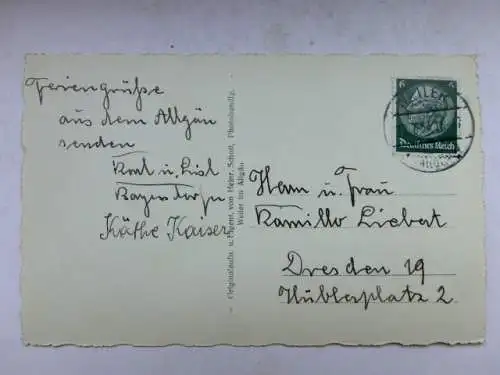 Feriengrüße
aus dem Allgäu
senden
Karl u. Lisl
Käthe Kaiser
Originalaufn. u. Eigent. von Heinr. Schott, Photohandlg.
Weiler im Allgäu.
6 6
Deutsches Reich
WEILER
Herrn u. Frau
Kamillo Liebert
Dresden 19
Hüblerplatz 2.